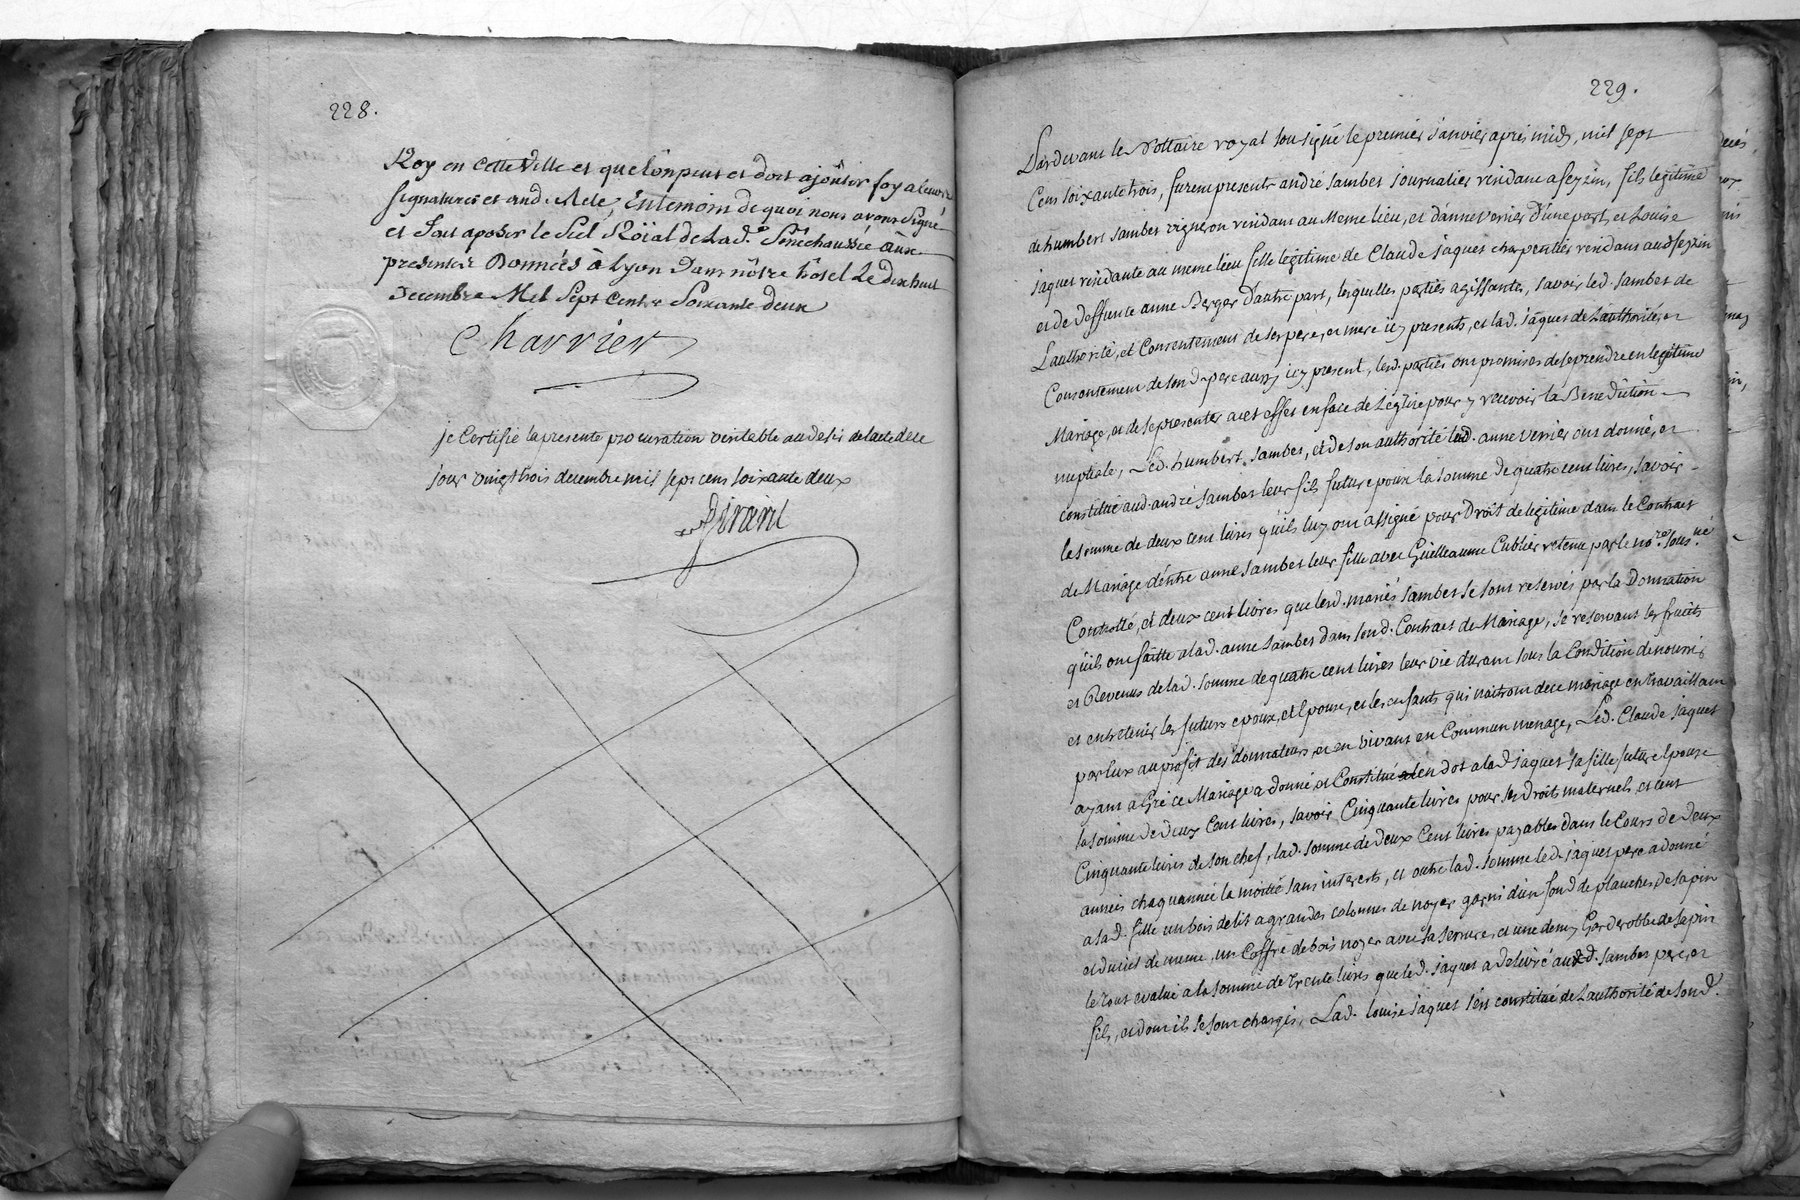 228.
Roy en cette Ville et que lônpeut et doit ajôuter foy a leurs
signatures et aud. Mele, Entemoin de quoi nous avons Signé
et Fait aposer le Scel Roïal de Lad.e Sénéchaussée aûx
presentes Données à Lyon Dans nôtre hôtel Le dixhuit
Decembre Mil Sept Cents Soixante deux
Charrier
je Certifie la presente procuration veritable au desir de lacte de ce
jour vingt trois decembre mil sept cens soixante deux
Girard
229.
Pardevant le Nottaire royal sousigné le premier Janvier après midy, mil sept
Cens soixante trois, furent presents andré Sambet Journalier residant a feyzin, fils legitime
de humbert Sambet vigneron residant au Meme lieu, et d'anne verrier d'une part, et Louise
Jaquet residante au meme lieu fille legitime de Claude Jaques charpentier residant aud feyzin
et de deffunte anne Berger d'autre part, lesquelles parties agissantes, savoir led. Sambet de
Lauthorité, et Consentement de ses pere, et mere icy presents, et lad. Jâques de Lauthorité, et
Consentement de sond. pere aussy icy present, lesd. parties ont promises de se prendre en legitime
Mariage, et de se presenter a cet effet en face de Leglise pour y recevoir la Benediction
nuptiale, Led. humbert Sambet, et de son authorité lad. anne verrier ont donné, et
constitué aud. andré Sambet leur fils futur epoux la somme de quatre cent livres, savoir
la somme de deux cent livres qu'ils luy ont assigné pour Droit de legitime dans le Contract
de Mariage d'entre anne Sambet leur fille avec Guilleaume Cublier retenu par le no.re sous.né
Controllé, et deux cent livres que lesd. mariés Sambet se sont reservés par la Donnation
qu'ils ont faitte a lad. anne Sambet dans sond. Contract de Mariage, se reservant les fruits
et Revenus de lad. somme de quatre cent livres leur vie durant sous la Condition de nourrir,
et entretenir les futurs epoux, et Epouse, et les enfants qui naitront de ce mariage en travaillant
par eux au profit des donnateurs et en vivant en Commun menage, Led. Claude Jaquet
ayant a Gré ce Mariage a donné et Constitué en dot a lad Jaquet sa fille future Epouse
la somme de Deux Cent livres, savoir Cinquante livres pour ses droits maternels, et cent
Cinquante livres de son chef, lad. somme de Deux Cent livres payables dans le Cours de Deux
années chaque année la moitié sans interests, et outre lad. somme led. Jaquet pere a donné
a lad. fille un bois de lit a grandes colonnes de noyer garni d'un fond de planches de sapin
et du ciel de meme, un Coffre de bois noyer avec sa serrure, et une demy Garderobbe de sapin
le tout evalué a la somme de Trente livres que led. Jaquet a delivré aud. Sambet pere, et
fils, et dont ils se sont chargés, Lad. Louise Jaquet s'est constitué de Lauthorité de sond.